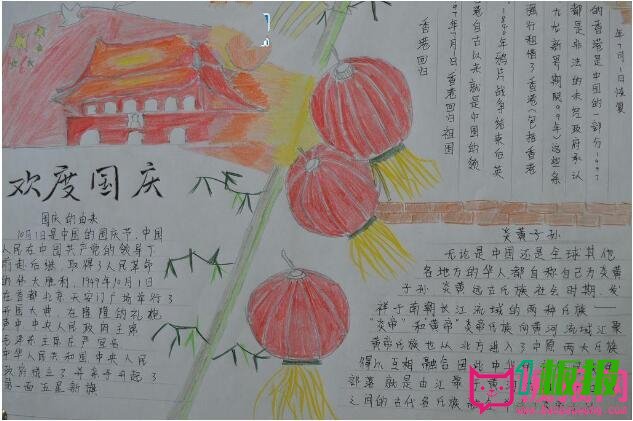 欢度国庆
国庆的由来
10月1日是中国的国庆节,中国
人民在中国共产党的领导下
前赴后继,取得了人民革命
的伟大胜利,1949年10月1日
在首都北京天安门广场举行了
开国大典,在隆隆的礼炮
声中中央人民政府主席
毛泽东主席庄严宣告
中华人民共和国中央人民
政府成立了并亲手升起了
第一面五星新旗
年7月1日恢复
的香港是中国的一部分1997
都是非法的未经政府承认
九龙新署期限99年)这些条
强行租借了香港(包括香港
1840年鸦片战争结束后英
香港自古以来就是中国的领
年7月1日香港回归祖国
香港回归
炎黄子孙
无论是中国还是全球其他
各地方的华人都自称自己为炎黄
子孙 炎黄远古氏族社会时期 发
祥于南朝长江流域的两种氏族
"炎帝"和黄帝"炎帝氏族向黄河流域汇聚
黄帝氏族也从北方进入了中原 两大氏族
得以互相融合因此中
部落就是由江
之间的古代各氏族